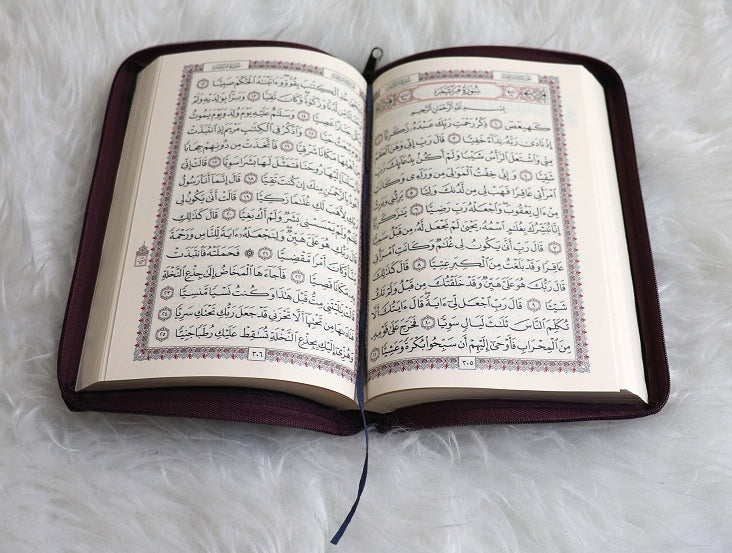 سُورَةُ مَرْيَمَ
بِسْمِ ٱللَّهِ ٱلرَّحْمَٰنِ ٱلرَّحِيمِ
كٓهيعٓصٓ ١ ذِكْرُ رَحْمَتِ رَبِّكَ عَبْدَهُۥ زَكَرِيَّآ ٢
إِذْ نَادَىٰ رَبَّهُۥ نِدَآءً خَفِيًّا ٣ قَالَ رَبِّ إِنِّى وَهَنَ ٱلْعَظْمُ
مِنِّى وَٱشْتَعَلَ ٱلرَّأْسُ شَيْبًا وَلَمْ أَكُنۢ بِدُعَآئِكَ رَبِّ
شَقِيًّا ٤ وَإِنِّى خِفْتُ ٱلْمَوَٰلِىَ مِن وَرَآءِى وَكَانَتِ
ٱمْرَأَتِى عَاقِرًا فَهَبْ لِى مِن لَّدُنكَ وَلِيًّا ٥ يَرِثُنِى وَيَرِثُ
مِنْ ءَالِ يَعْقُوبَ وَٱجْعَلْهُ رَبِّ رَضِيًّا ٦ يَٰزَكَرِيَّآ
إِنَّا نُبَشِّرُكَ بِغُلَٰمٍ ٱسْمُهُۥ يَحْيَىٰ لَمْ نَجْعَل لَّهُۥ مِن قَبْلُ سَمِيًّا
٧ قَالَ رَبِّ أَنَّىٰ يَكُونُ لِى غُلَٰمٌ وَكَانَتِ ٱمْرَأَتِى
عَاقِرًا وَقَدْ بَلَغْتُ مِنَ ٱلْكِبَرِ عِتِيًّا ٨ قَالَ كَذَٰلِكَ
قَالَ رَبُّكَ هُوَ عَلَىَّ هَيِّنٌ وَقَدْ خَلَقْتُكَ مِن قَبْلُ وَلَمْ تَكُ
شَيْـًٔا ٩ قَالَ رَبِّ ٱجْعَل لِّىٓ ءَايَةً قَالَ ءَايَتُكَ أَلَّا
تُكَلِّمَ ٱلنَّاسَ ثَلَٰثَ لَيَالٍ سَوِيًّا ١٠ فَخَرَجَ عَلَىٰ قَوْمِهِۦ
مِنَ ٱلْمِحْرَابِ فَأَوْحَىٰٓ إِلَيْهِمْ أَن سَبِّحُوا۟ بُكْرَةً وَعَشِيًّا ١١
٣٠٥
سُورَةُ مَرْيَمَ
ٱلْكِتَٰبَ بِقُوَّةٍ وَءَاتَيْنَٰهُ ٱلْحُكْمَ صَبِيًّا ١٢
مِّن لَّدُنَّا وَزَكَوٰةً وَكَانَ تَقِيًّا ١٣ وَبَرًّۢا بِوَٰلِدَيْهِ وَلَمْ
يَكُن جَبَّارًا عَصِيًّا ١٤ وَسَلَٰمٌ عَلَيْهِ يَوْمَ وُلِدَ وَيَوْمَ يَمُوتُ
حَيًّا ١٥ وَٱذْكُرْ فِى ٱلْكِتَٰبِ مَرْيَمَ إِذِ ٱنتَبَذَتْ
مَكَانًا شَرْقِيًّا ١٦ فَٱتَّخَذَتْ مِن دُونِهِمْ حِجَابًا
إِلَيْهَا رُوحَنَا فَتَمَثَّلَ لَهَا بَشَرًا سَوِيًّا ١٧ قَالَتْ إِنِّىٓ
بِٱلرَّحْمَٰنِ مِنكَ إِن كُنتَ تَقِيًّا ١٨ قَالَ إِنَّمَآ أَنَا۠ رَسُولُ
رَبِّكِ لِأَهَبَ لَكِ غُلَٰمًا زَكِيًّا ١٩ قَالَتْ أَنَّىٰ يَكُونُ لِى
غُلَٰمٌ وَلَمْ يَمْسَسْنِى بَشَرٌ وَلَمْ أَكُ بَغِيًّا ٢٠ قَالَ كَذَٰلِكِ
قَالَ رَبُّكِ هُوَ عَلَىَّ هَيِّنٌ وَلِنَجْعَلَهُۥٓ ءَايَةً لِّلنَّاسِ وَرَحْمَةً
مِّنَّا وَكَانَ أَمْرًا مَّقْضِيًّا ٢١ فَحَمَلَتْهُ فَٱنتَبَذَتْ
بِهِۦ مَكَانًا قَصِيًّا ٢٢ فَأَجَآءَهَا ٱلْمَخَاضُ إِلَىٰ جِذْعِ ٱلنَّخْلَةِ
قَالَتْ يَٰلَيْتَنِى مِتُّ قَبْلَ هَٰذَا وَكُنتُ نَسْيًا مَّنسِيًّا ٢٣
فَنَادَىٰهَا مِن تَحْتِهَآ أَلَّا تَحْزَنِى قَدْ جَعَلَ رَبُّكِ تَحْتَكِ سَرِيًّا ٢٤
وَهُزِّىٓ إِلَيْكِ بِجِذْعِ ٱلنَّخْلَةِ تُسَٰقِطْ عَلَيْكِ رُطَبًا جَنِيًّا ٢٥
٣٠٦